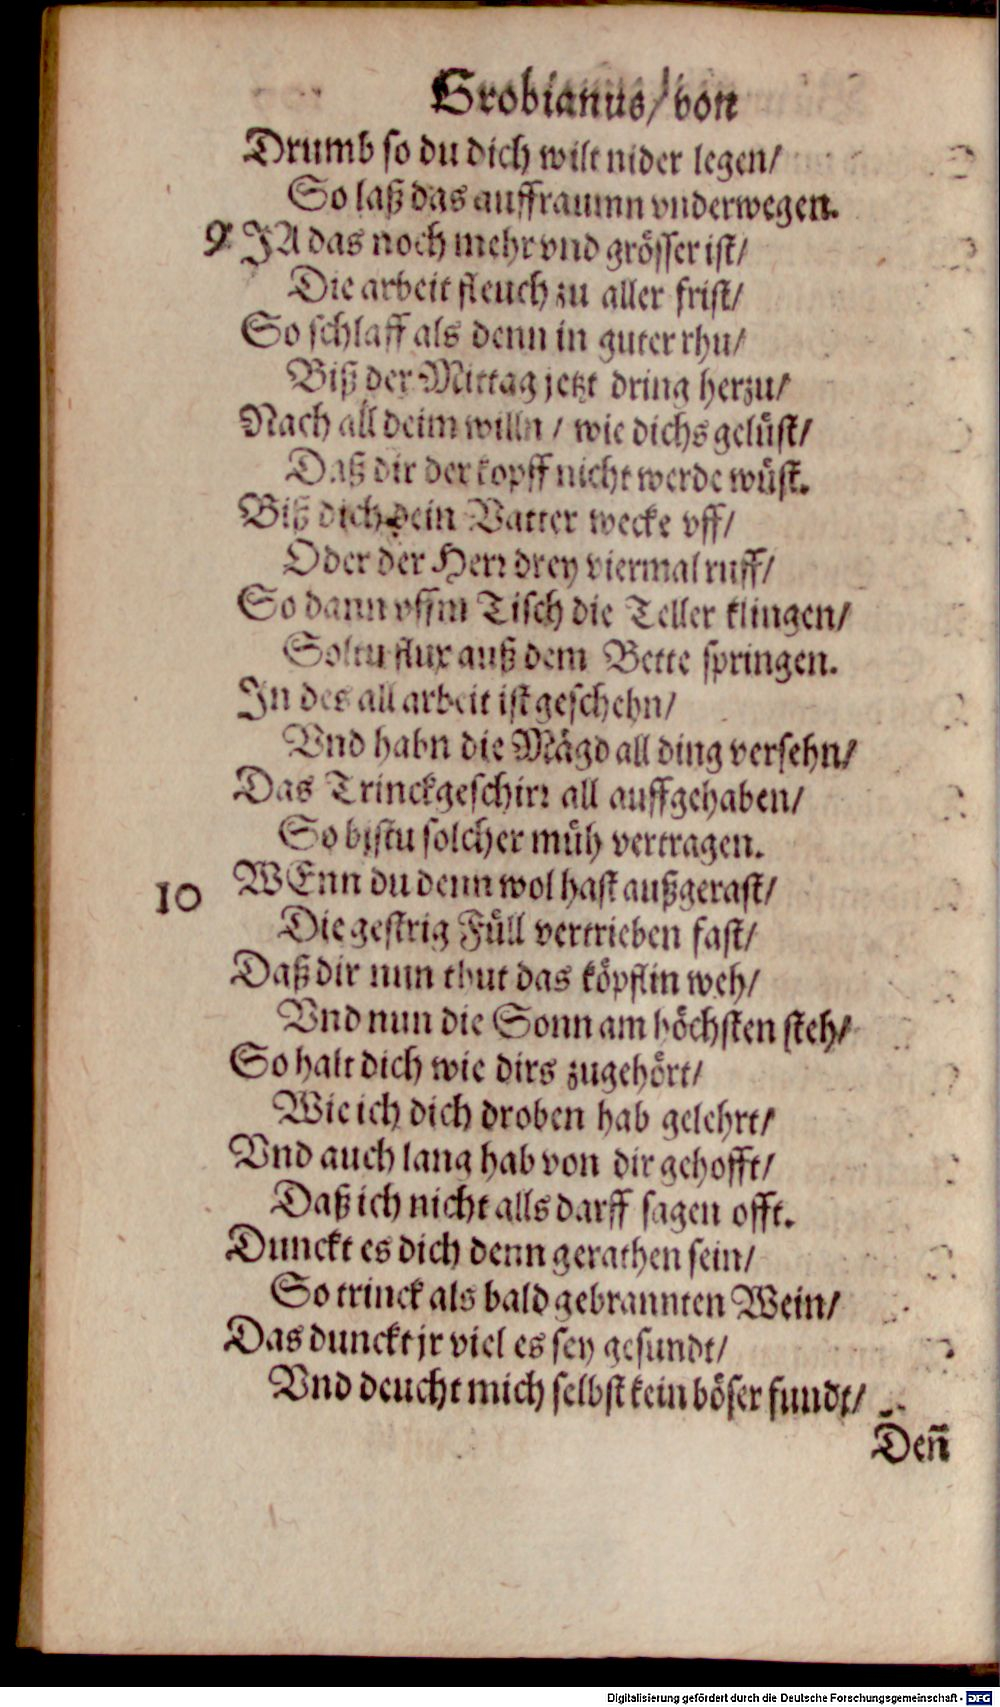 Grobianus/ von
Drumb so du dich wilt nider legen/
So laß das auffraumn vnderwegen.
9 JA das noch mehr vnd grösser ist/
Die arbeit fleuch zu aller frist/
So schlaff als denn in guter rhu/
Biß der Mittag jetzt dring herzu/
Nach all deim willn / wie dichs gelüst/
Daß dir der kopff nicht werde wüst.
Biß dich dein Vatter wecke vff/
Oder der Herr drey viermal ruff/
So dann vffm Tisch die Teller klingen/
Soltu flux auß dem Bette springen.
In des all arbeit ist geschehn/
Vnd habn die Mägd all ding versehn/
Das Trinckgeschirr all auffgehaben/
So bistu solcher müh vertragen.
10 WEnn du denn wol hast außgerast/
Die gestrig Füll vertrieben fast/
Daß dir nun thut das köpflin weh/
Vnd nun die Sonn am höchsten steh/
So halt dich wie dirs zugehört/
Wie ich dich droben hab gelehrt/
Vnd auch lang hab von dir gehofft/
Daß ich nicht alls darff sagen offt.
Dunckt es dich denn gerathen sein/
So trinck als bald gebrannten Wein/
Das duncktjr viel es sey gesundt/
Vnd deucht mich selbst kein böser fundt/
Deñ
Digitalisierung gefördert durch die Deutsche Forschungsgemeinschaft - DFG